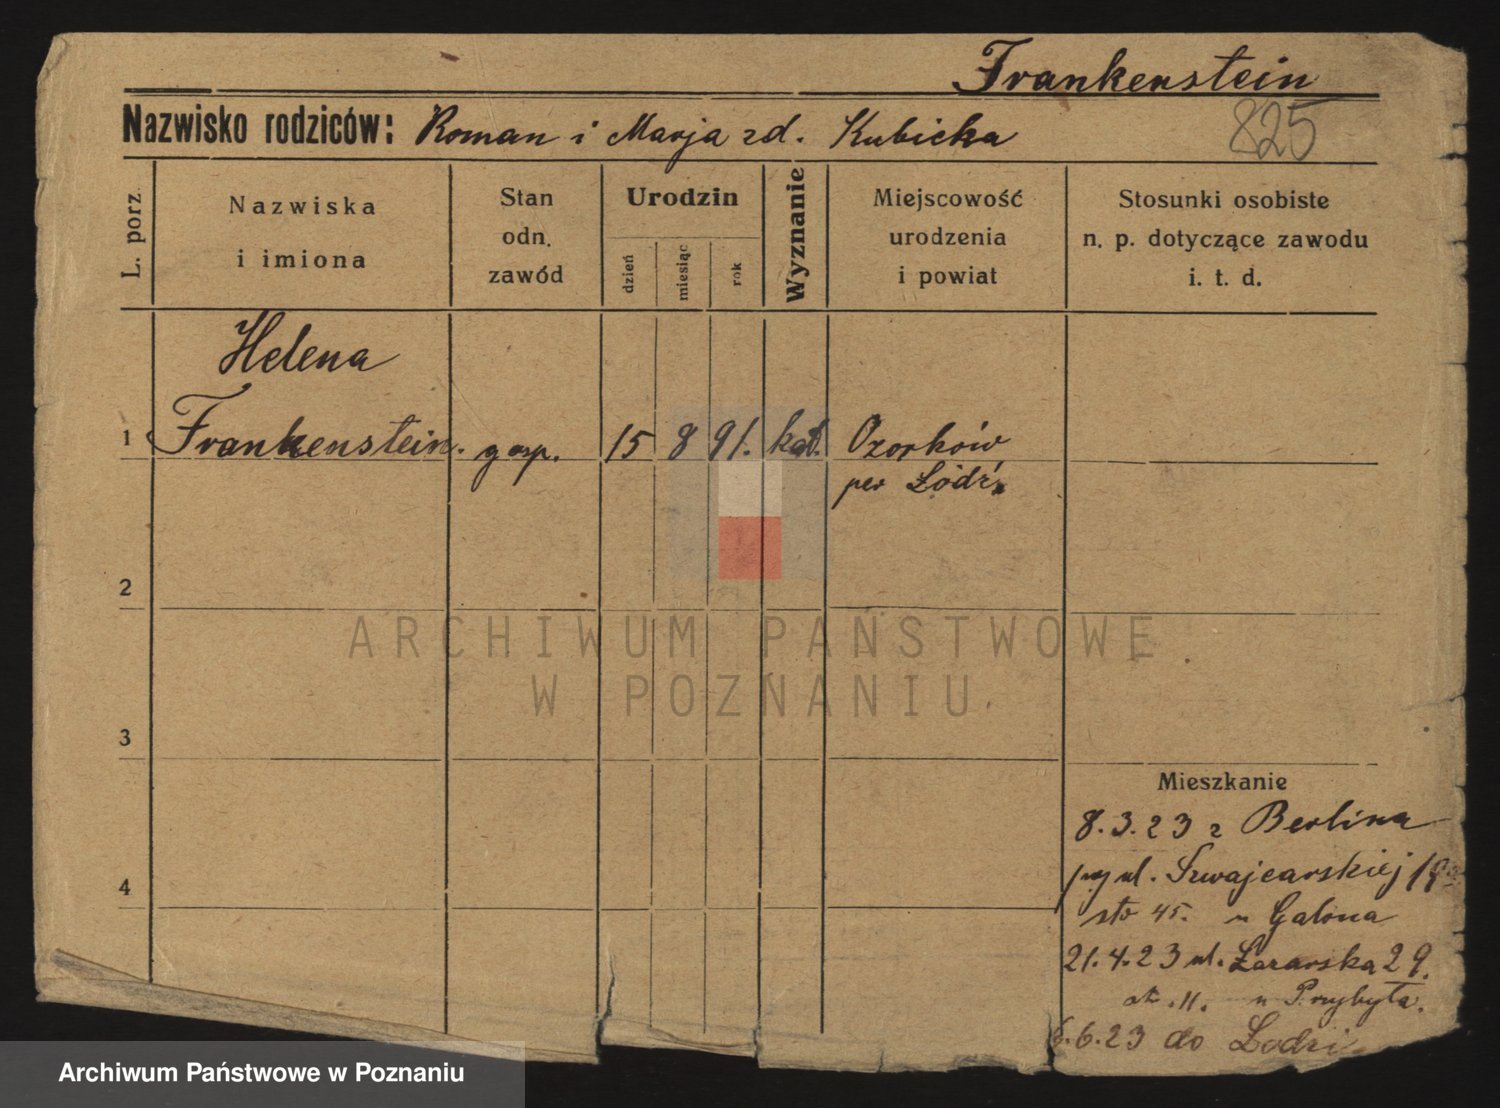 Frankenstein
825
Nazwisko rodziców: Roman i Marja zd. Kubicka
L. porz
Nazwiska
i imiona
Stan
odn.
zawód
Urodzin
dzień
miesiąc
rok
Wyznanie
Miejscowość
urodzenia
i powiat
Stosunki osobiste
n. p. dotyczące zawodu
i. t. d.
Helena
1 Frankenstein. gosp. 15 8 91. kat. Ozorków
pow Łódź
2
3
4
ARCHIWUM PAŃSTWOWE
W POZNANIU
Mieszkanie
8.3.23 z Berlina
przy ul. Szwajcarskiej
sto 45. u Galona
21.4.23 ul. Łazarska 29.
st. 11. u Przybyła.
6.23 do Łodzi
Archiwum Państwowe w Poznaniu